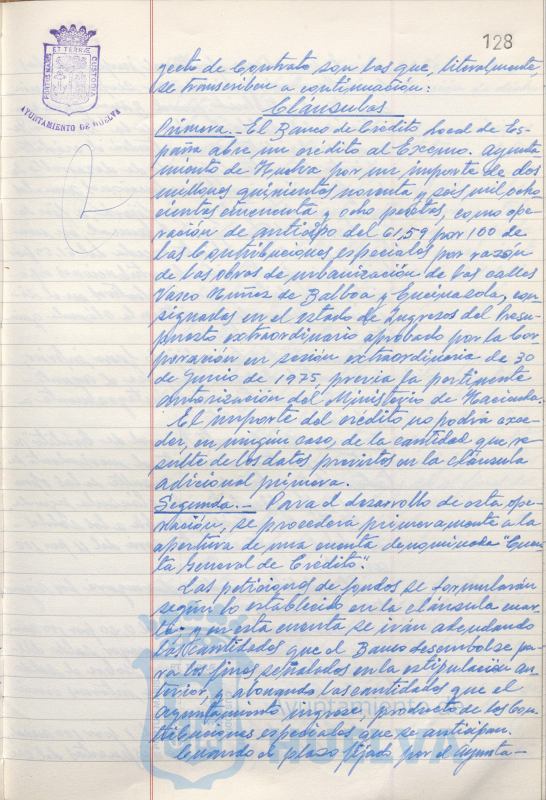 128
ET TERRÆ
PORTUS MARIS
CUSTODIA
AYUNTAMIENTO DE HUELVA
yecto de Contrato son las que, literalmente,
se transcriben a continuación:
Cláusulas
Primera.- El Banco de Crédito Local de Es-
paña abre un crédito al Excmo. Ayunta-
miento de Huelva por un importe de dos
millones quinientas noventa y seis mil ocho
cientas cincuenta y ocho pesetas, como ope-
ración de anticipo del 61,59 por 100 de
las Contribuciones especiales por razón
de las obras de urbanización de las calles
Vasco Núñez de Balboa y Encinasola, con-
signadas en el estado de Ingresos del Presu-
puesto extraordinario aprobado por la Cor-
poración en sesión extraordinaria de 30
de Junio de 1975, previa la pertinente
autorización del Ministerio de Hacienda.
El importe del crédito no podrá exce-
der, en ningún caso, de la cantidad que re
sulte de los datos previstos en la cláusula
adicional primera.
Segunda.- Para el desarrollo de esta ope-
ración, se procederá primeramente a la
apertura de una cuenta denominada "Cuen
ta General de Crédito".
Las peticiones de fondos se formularán
según lo establecido en la cláusula cuar-
ta; y en esta cuenta se irán adeudando
las cantidades que el Banco desembolse pa-
ra los fines señalados en la estipulación an-
terior, y abonando las cantidades que el
Ayuntamiento ingrese, producto de las Con
tribuciones especiales que se anticipan.
Cuando el plazo fijado por el Ayunta-
Ayuntamiento
HUELVA